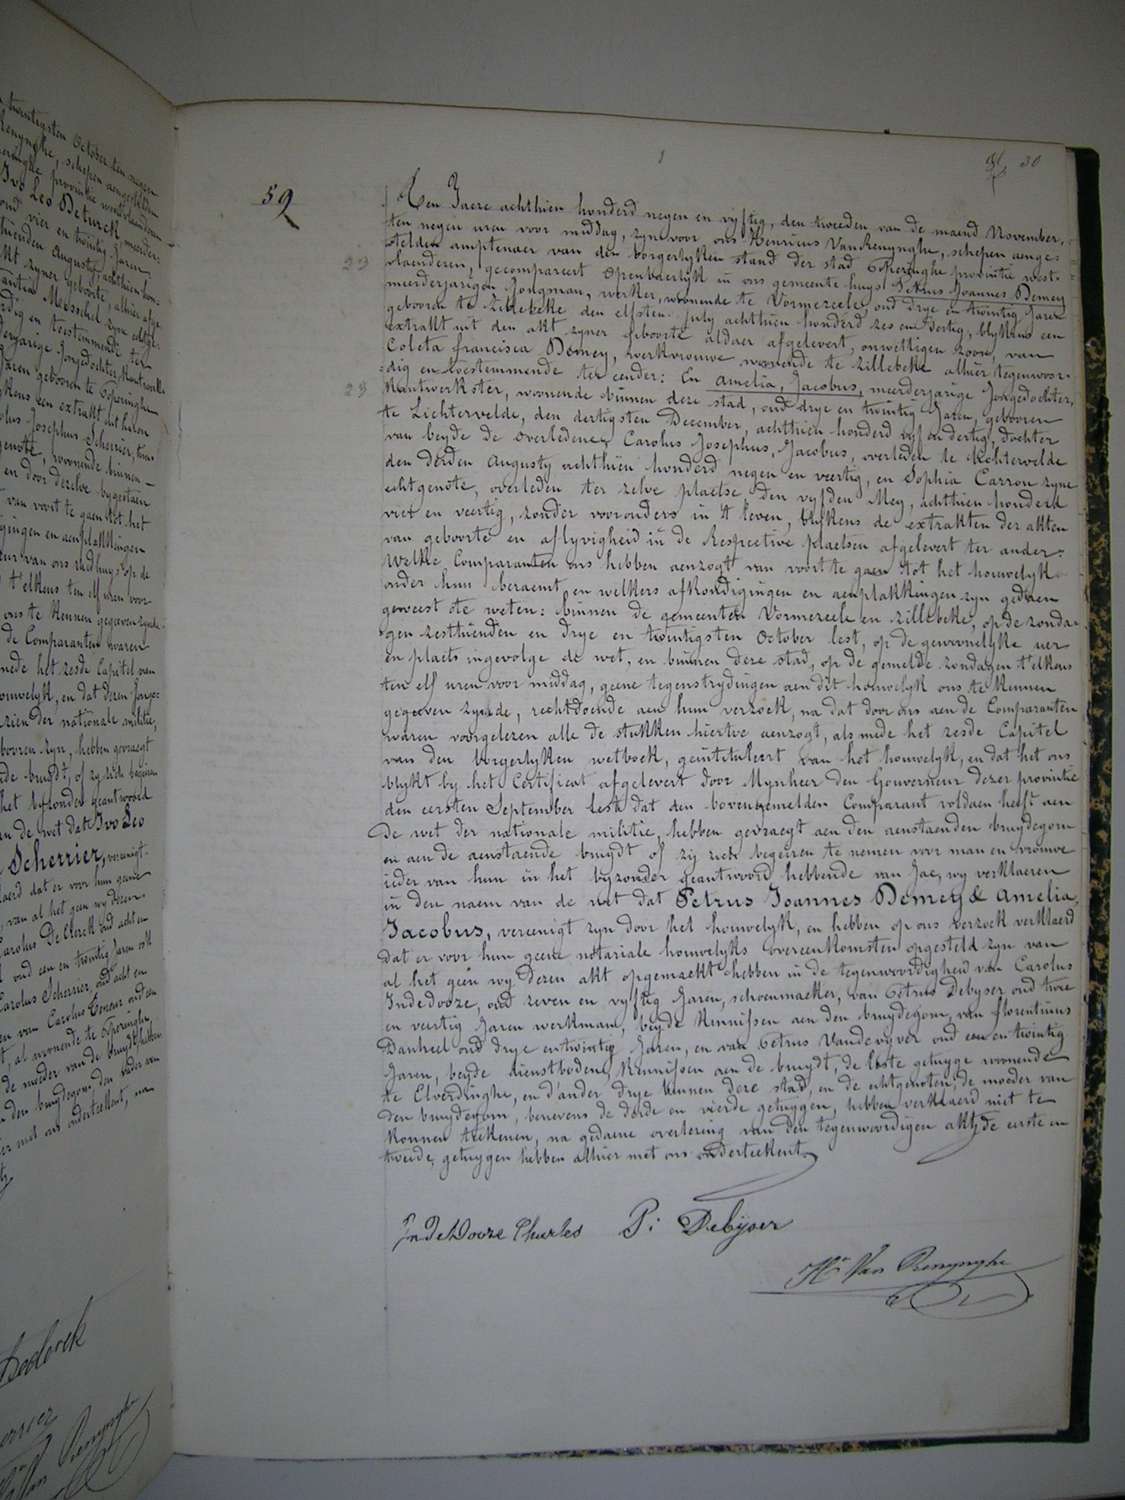 twintigsten October
schepen
Ivo Leo Deturck
vier en twintig Jaren
Augusty achthien hon-
zyner geboorte, alhier afge-
Messchel zyn
en toestemmende ter
Jongedochter, Kantwerk-
Jaren geboren te Poperinghe
een extrakt uit
Josephus Scherrier,
woonende binnen
en door dezelve
van voort te gaen tot het
en aenplakkingen
van ons raedhuys op de
t'elkens ten elf uren voor
ons te Kennen gegeven zynde
de Comparanten waren
mede het zesde Capitel van
houwelyk, en dat dezen
der nationale militie,
geboren zyn, hebben gevraegt
bruydt, of zy zich begeiren
het byzonder geantwoord
de wet dat Ivo Leo
Scherrier, vereenigt
dat er voor hun geene
van al het geen wy dezen
Carolus De Clerck oud acht en
oud een en twintig Jaren
Carolus Scherrier, oud acht en
van Carolus
al woonende te Poperinghe,
de moeder van de bruydt
den bruydegom, den vader van
met ons onderteekent, na
Declerck
Van Renynghe
30
59
Ten Jaere achthien honderd negen en vyftig, den tweeden van de maend November,
ten negen uren voor middag, zyn voor ons Henricus Van Renynghe, schepen aenge-
stelden amptenaer van den borgerlyken stand der stad Poperinghe provintie west-
23 vlaenderen, gecompareert openbaerlyk in ons gemeente huys Petrus Joannes Demey
meerderjarigen Jongman, werker, woonende te Vormezeele, oud drye en twintig Jaren
geboren te Zillebeke den elfsten July achthien honderd zes en dertig, blykens een
extrakt uit den akt zyner geboorte aldaer afgelevert, onwettigen zoon, van
Coleta francisca Demey, werkvrouwe woonende te Zillebeke alhier tegenwoor-
dig en toestemmende ter eender: En Amelia, Jacobus, meerderjarige Jongedochter,
23 Kantwerkster, woonende binnen deze stad, oud drye en twintig Jaren, geboren
te Lichtervelde, den dertigsten December, achthien honderd vyf en dertig, dochter
van beyde de overledene Carolus Josephus, Jacobus, overleden te Lichtervelde
den derden Augusty achthien honderd negen en veertig, en Sophia Carron zyne
echtgenote, overleden ter zelve plaetse den vyfden Mey, achthien honderd
vier en veertig, zonder voorouders in 't leven, blykens de extrakten der akten
van geboorte en aflyvigheid in de respective plaetsen afgelevert ter ander:
Welke Comparanten ons hebben aenzogt van voort te gaen tot het houwelyk
onder hun beraemt en welkers afkondigingen en aenplakkingen zyn gedaen
geweest te weten: binnen de gemeenten Vormezeele en Zillebeke, op de zonda-
gen zesthienden en drye en twintigsten October lest, op de gewoonelyke uer
en plaets ingevolge de wet, en binnen deze stad, op de gemelde zondagen t'elkens
ten elf uren voor middag, geene tegenstrydingen aen dit houwelyk ons te Kennen
gegeven zynde, rechtdoende aen hun verzoek, na dat door ons aen de Comparanten
waren voorgelezen alle de stukken hiertoe aenzogt, als mede het zesde Capitel
van den borgerlyken wetboek, geintituleert van het houwelyk, en dat het ons
blykt by het Certificat afgelevert door Mynheer den Gouverneur dezer provintie
den eersten September lest dat den bovengemelden Comparant voldaen heeft aen
De wet der nationale militie, hebben gevraegt aen den aenstaenden bruydegom
en aen de aenstaende bruydt of zy zich begeiren te nemen voor man en vrouwe
ieder van hun in het byzonder geantwoord hebbende van Jae, wy verklaeren
in den naem van de wet dat Petrus Joannes Demey & Amelia,
Jacobus, vereenigt zyn door het houwelyk, en hebben op ons verzoek verklaerd
dat er voor hun geene notariale houwelyks overeenkomsten opgesteld zyn van
al het geen wy dezen akt opgemaekt hebben in de tegenwoordigheid van Carolus
Indedooze, oud zeven en vyftig Jaren, schoenmaeker, van Petrus Debyser oud twee
en veertig Jaren werkman, beyde Kennissen aen den bruydegom, van florentinus
Danheel oud drye en twintig Jaren, en van Petrus Vandevyver oud een en twintig
Jaren, beyde dienstboden Kennissen aen de bruydt, de leste getuyge woonende
te Elverdinghe, en d'ander drye binnen deze stad, en de echtgenoten, de moeder van
den bruydegom, benevens de derde en vierde getuygen, hebben verklaerd niet te
Konnen teekenen, na gedaene overlezing van den tegenwoordigen akt, de eerste en
tweede getuygen hebben alhier met ons onderteekent
Indedooze Charles P: Debyser
Hri Van Renynghe